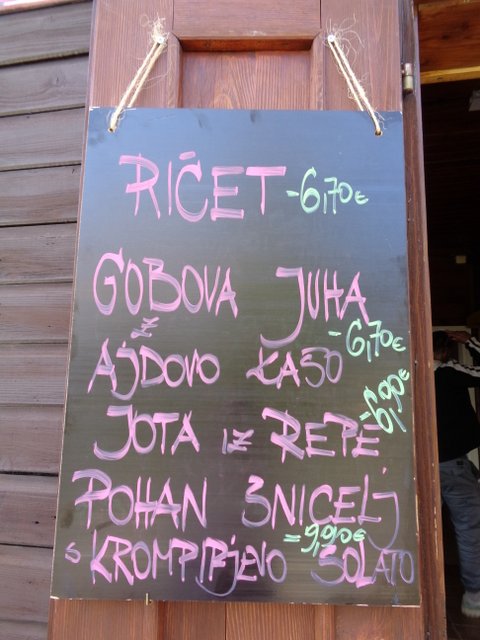 RIČET -6,70€
GOBOVA JUHA
Z -6,70€
AJDOVO KAŠO
JOTA IZ REPE =6,90€
POHAN ŠNICELJ
S KROMPIRJEVO SOLATO =9,90€